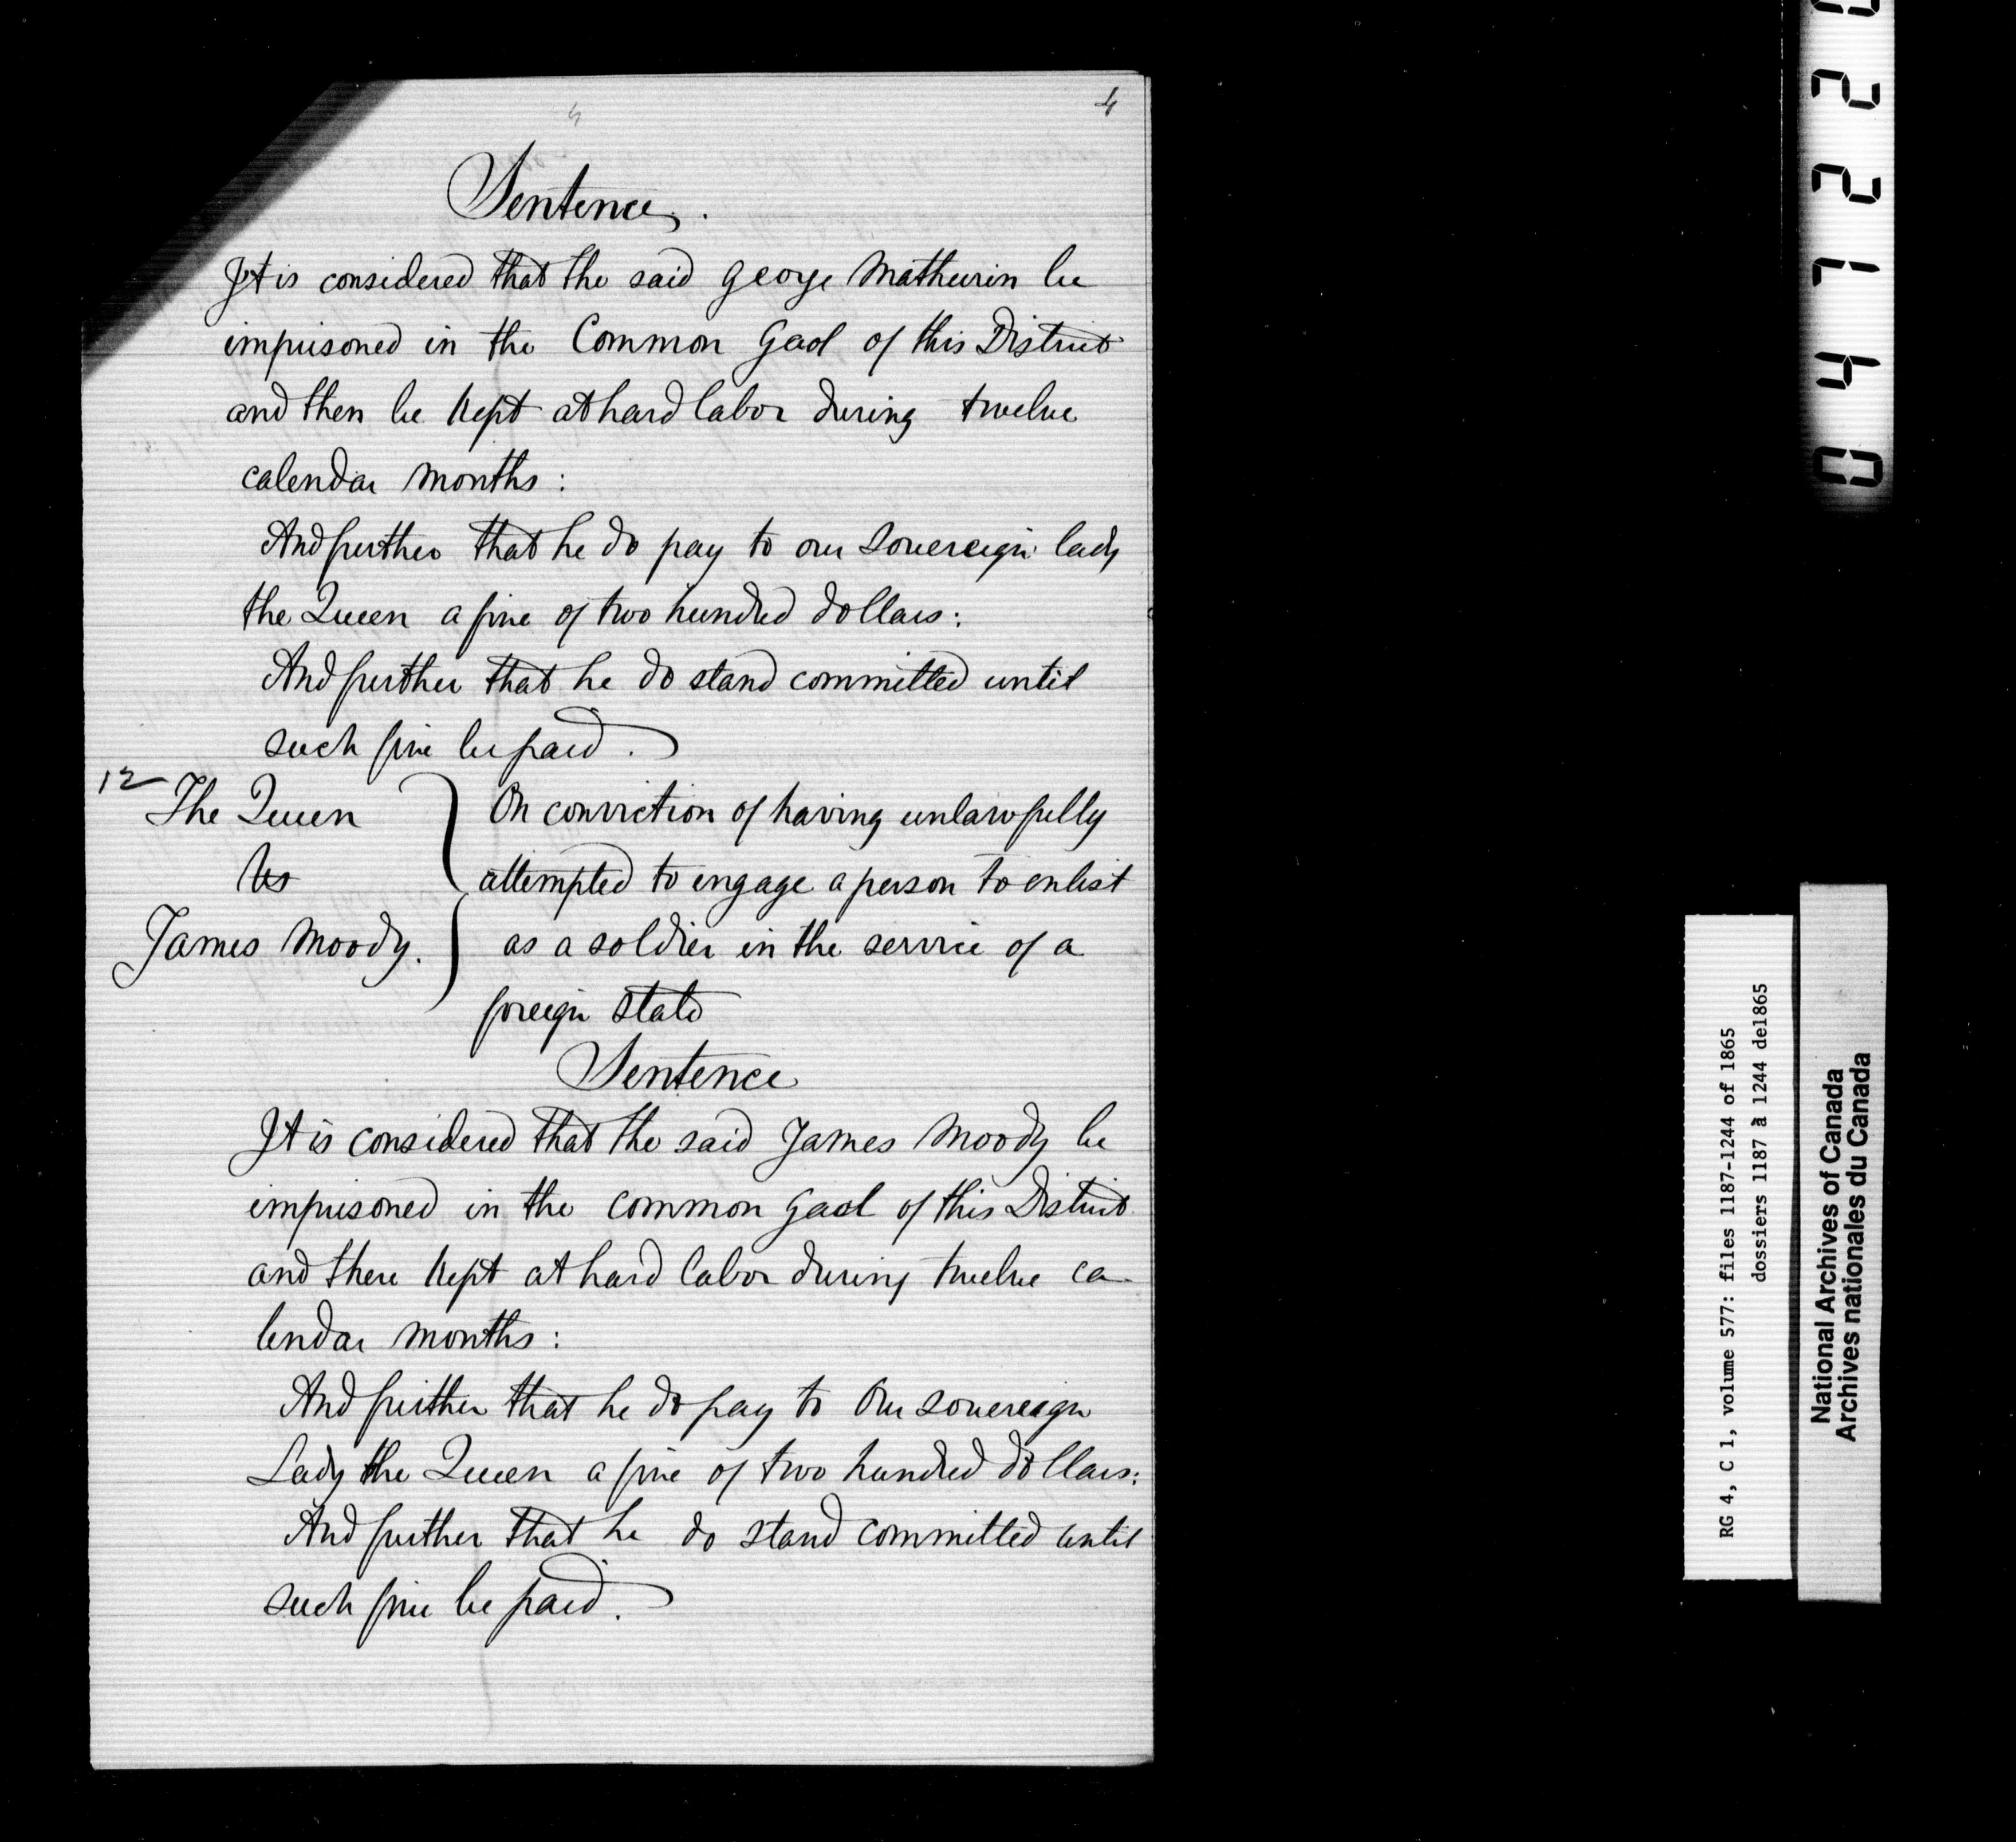 4
Sentence.
It is considered that the said George Mathurin be
imprisoned in the Common Gaol of this District
and then be kept at hard labor during twelve
calendar months:
And further that he do pay to our Sovereign lady
the Queen a fine of two hundred dollars:
And further that he do stand committed until
such fine be paid.
12
The Queen
Vs
James Moody.
On conviction of having unlawfully
attempted to engage a person to enlist
as a soldier in the service of a
foreign State
Sentence
It is considered that the said James Moody be
imprisoned in the common Gaol of this District
and there kept at hard labor during twelve ca-
lendar months:
And further that he do pay to Our Sovereign
Lady the Queen a fine of two hundred dollars:
And further that he do stand committed until
such fine be paid.
RG 4, C 1, volume 577: files 1187-1244 of 1865
dossiers 1187 à 1244 de1865
National Archives of Canada
Archives nationales du Canada